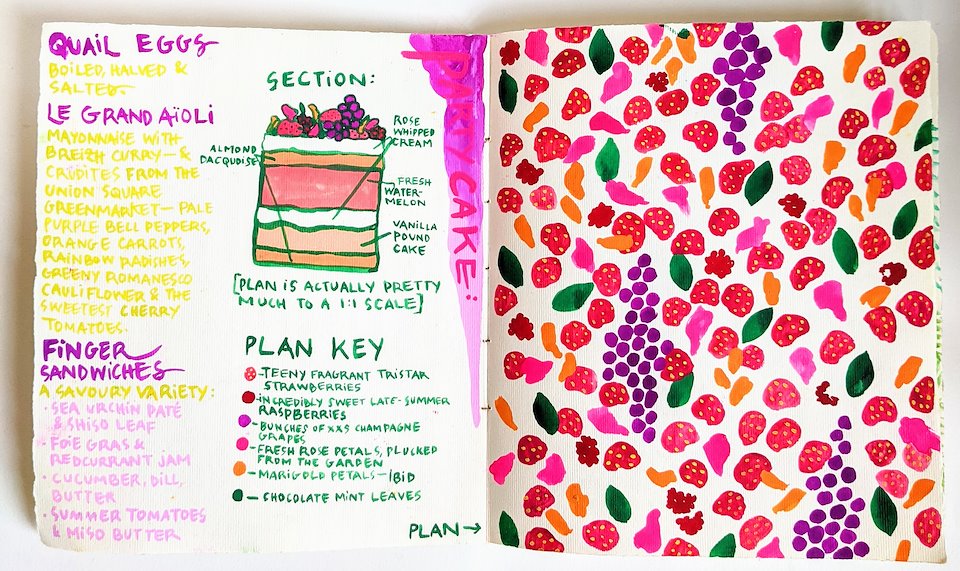 QUAIL EGGS
BOILED, HALVED &
SALTED.
LE GRAND AÏOLI
MAYONNAISE WITH
BREIZH CURRY— &
CRÛDITES FROM THE
UNION SQUARE
GREENMARKET— PALE
PURPLE BELL PEPPERS,
ORANGE CARROTS,
RAINBOW RADISHES,
GREENY ROMANESCO
CAULIFLOWER & THE
SWEETEST CHERRY
TOMATOES.
FINGER
SANDWICHES
A SAVOURY VARIETY:
· SEA URCHIN PATÉ
& SHISO LEAF
· FOIE GRAS &
REDCURRANT JAM
· CUCUMBER, DILL,
BUTTER
· SUMMER TOMATOES
& MISO BUTTER
SECTION:
ROSE
WHIPPED
CREAM
ALMOND
DACQUOISE
FRESH
WATER-
MELON
VANILLA
POUND
CAKE
[PLAN IS ACTUALLY PRETTY
MUCH TO A 1:1 SCALE]
PLAN KEY
- TEENY FRAGRANT TRISTAR
STRAWBERRIES
- INCREDIBLY SWEET LATE-SUMMER
RASPBERRIES
- BUNCHES OF XXS CHAMPAGNE
GRAPES
- FRESH ROSE PETALS, PLUCKED
FROM THE GARDEN
- MARIGOLD PETALS—IBID
- CHOCOLATE MINT LEAVES
PLAN→
PARTY CAKE: